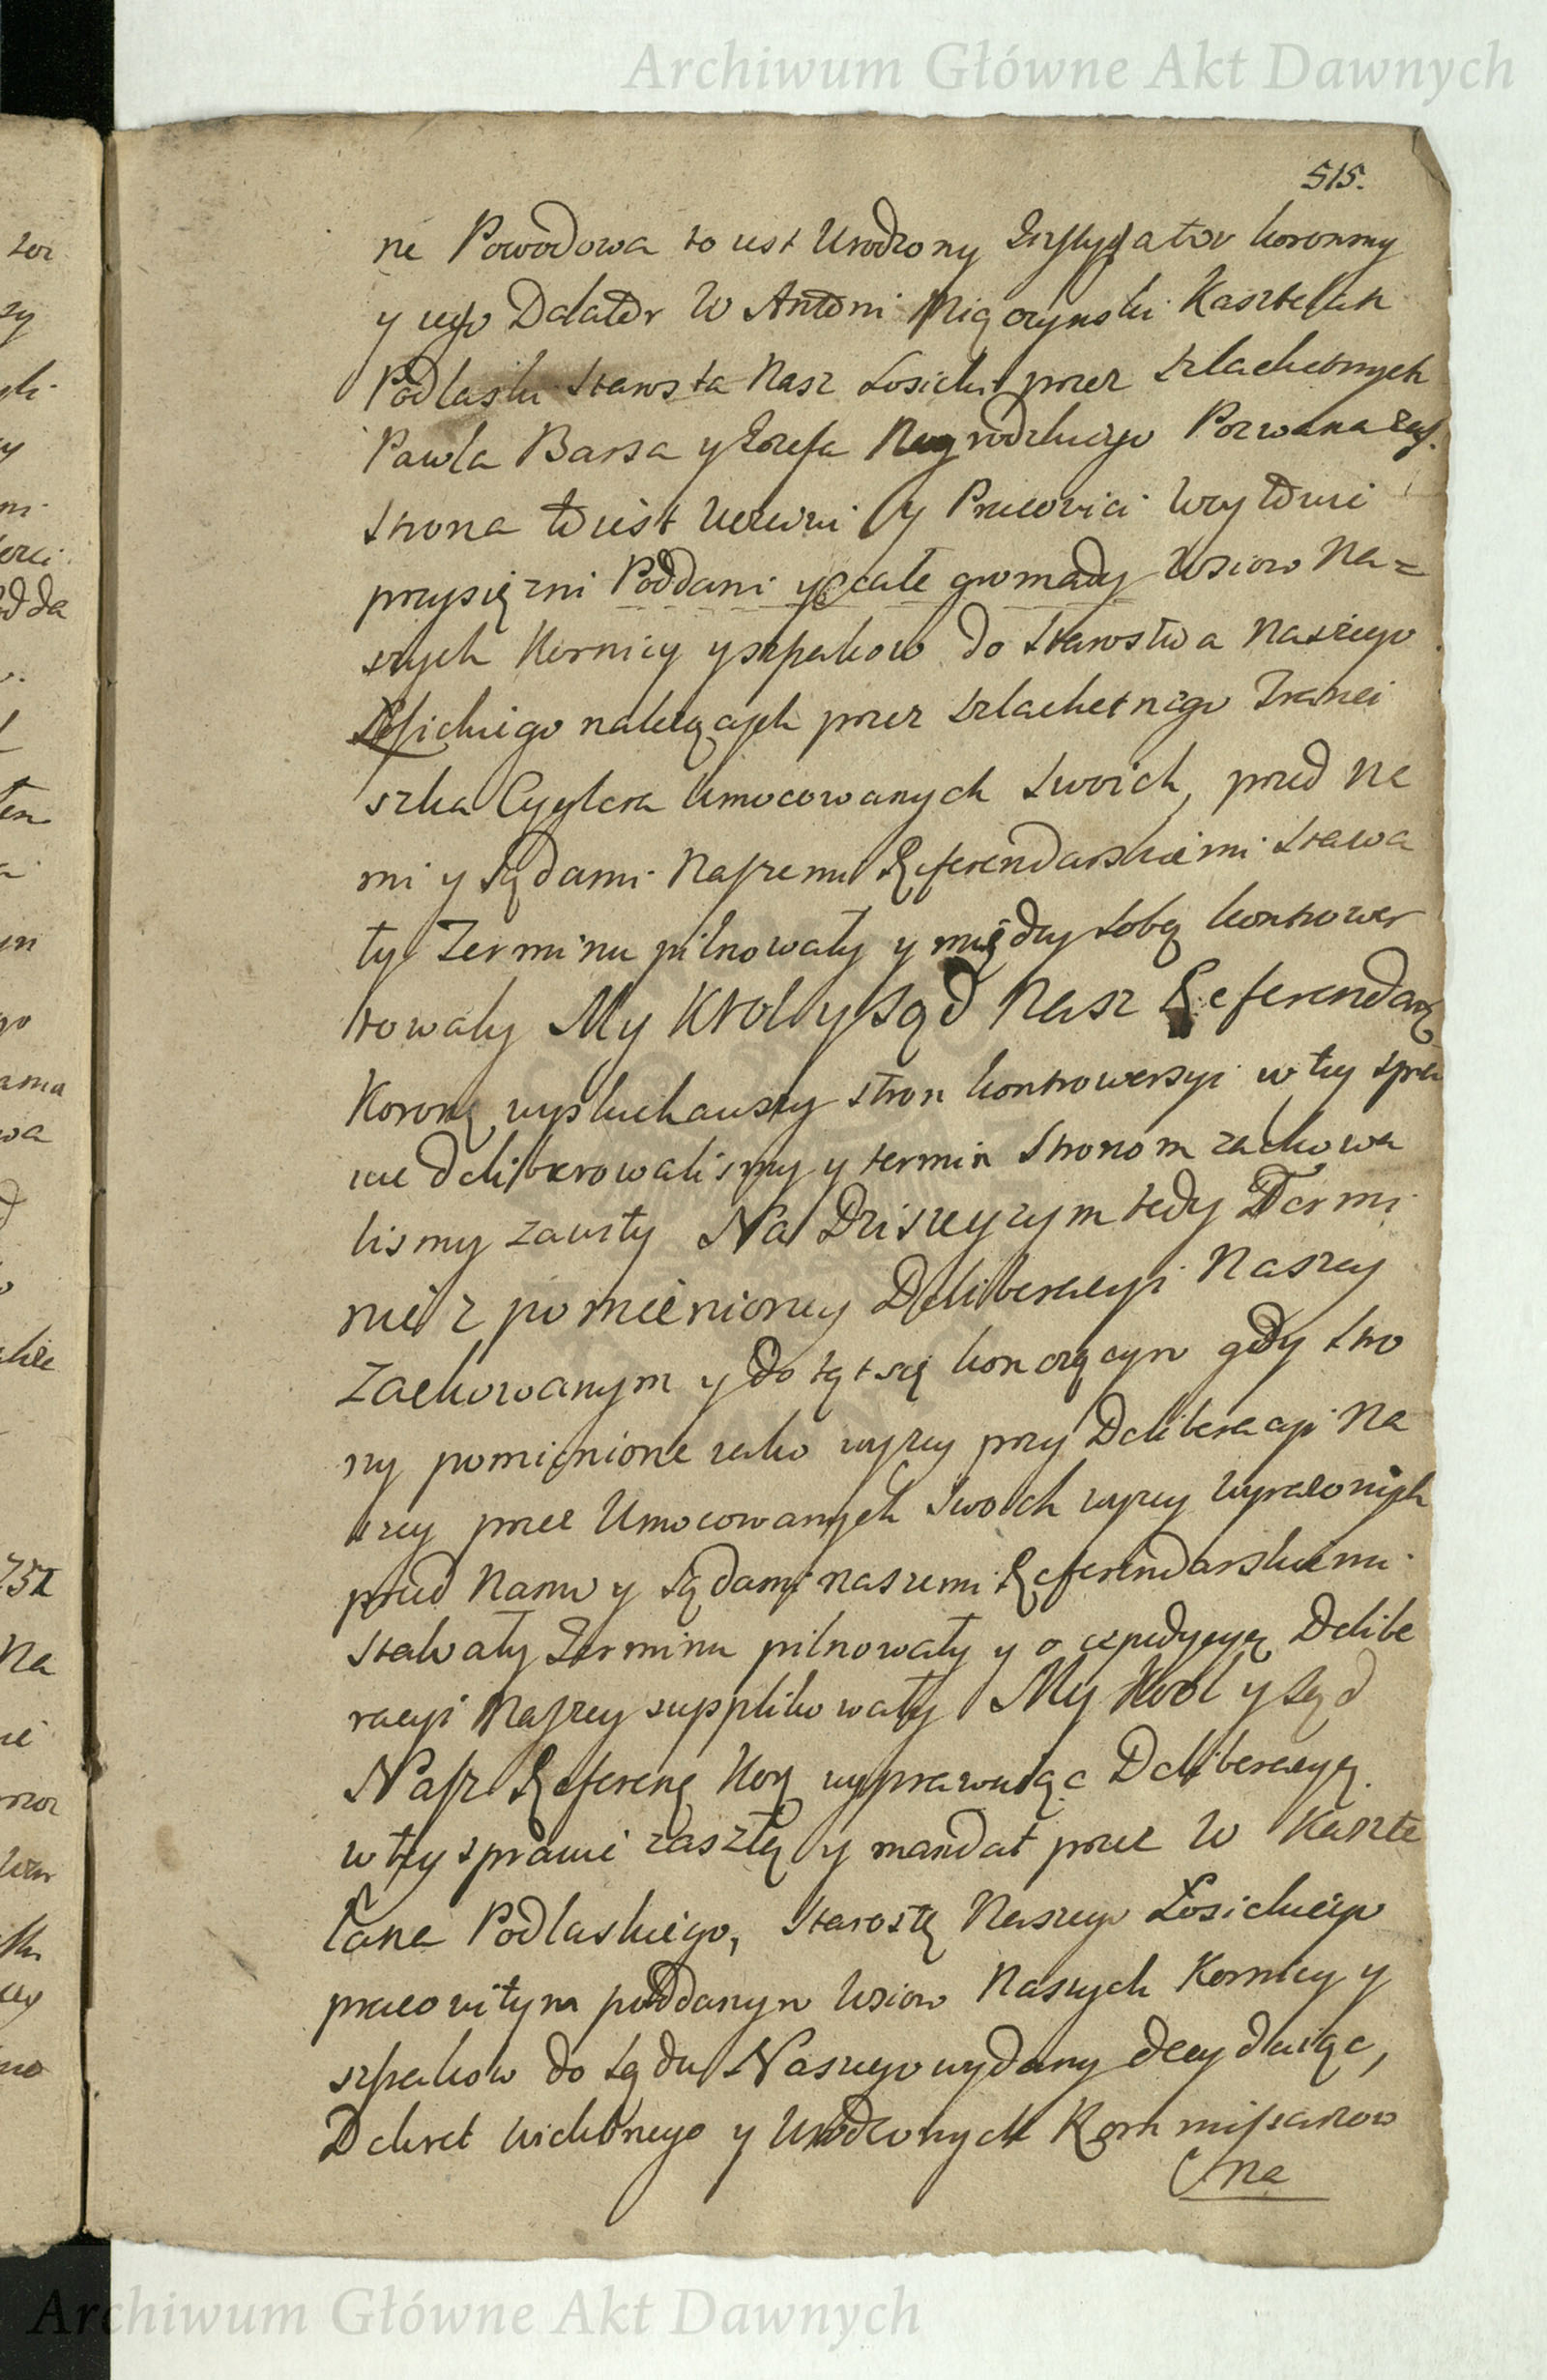 Archiwum Główne Akt Dawnych
515.
ne Powodowa to iest Urodzony Instygator koronny
y iego Delator W Antoni Miączynski Kasztelan
Podlaski Starosta Nasz Łosicki przez szlachetnych
Pawła Barsa y Jozefa Pozwana zaś
strona to iest Uczciwi y Pracowici Woytowie
przysięzni Poddani y całe gromady wsiow Na=
szych Kornicy y szpakow do Starostwa Naszego
Łosickiego nalezących przez szlachetnego Franci
szka Cyglera Umocowanych swoich, przed Na
mi y Sądami Naszemi Referendarskiemi stawa
ły Terminu pilnowały y między sobą kontrower
towały My Krol y Sąd Nasz Referendar
Koronę wysłuchawszy stron kontrowersyi w tey spra
wie deliberowalismy y termin stronom zachowa
lismy zawisły Na Dzisieyszym tedy Termi
nie z pomienioney Deliberacyi Naszey
Zachowanym y do tąt się konczącym gdy stro
ny pomienione iako wyzey przy Deliberacyi Na
szey przez Umocowanych swoich wyzey wyrazonych
przed Nami y Sądami naszemi Referendarskiemi
stawały Terminu pilnowały y o expedycyą Delibe
racyi Naszey supplikowały My Krol y Sąd
Nasz Referenę Korą wyprawuiąc Deliberacyą
w tey sprawie zaszłą y mandat przez W Kaszte
lana Podlaskiego, Starostę Naszego Łosickiego
pracowitym poddanym wsiow Naszych Kornicy y
szpakow do Sądu Naszego wydany decyduiąc,
Dekret wielmoznego y Urodzonych Kommissarzow
na
Archiwum Główne Akt Dawnych